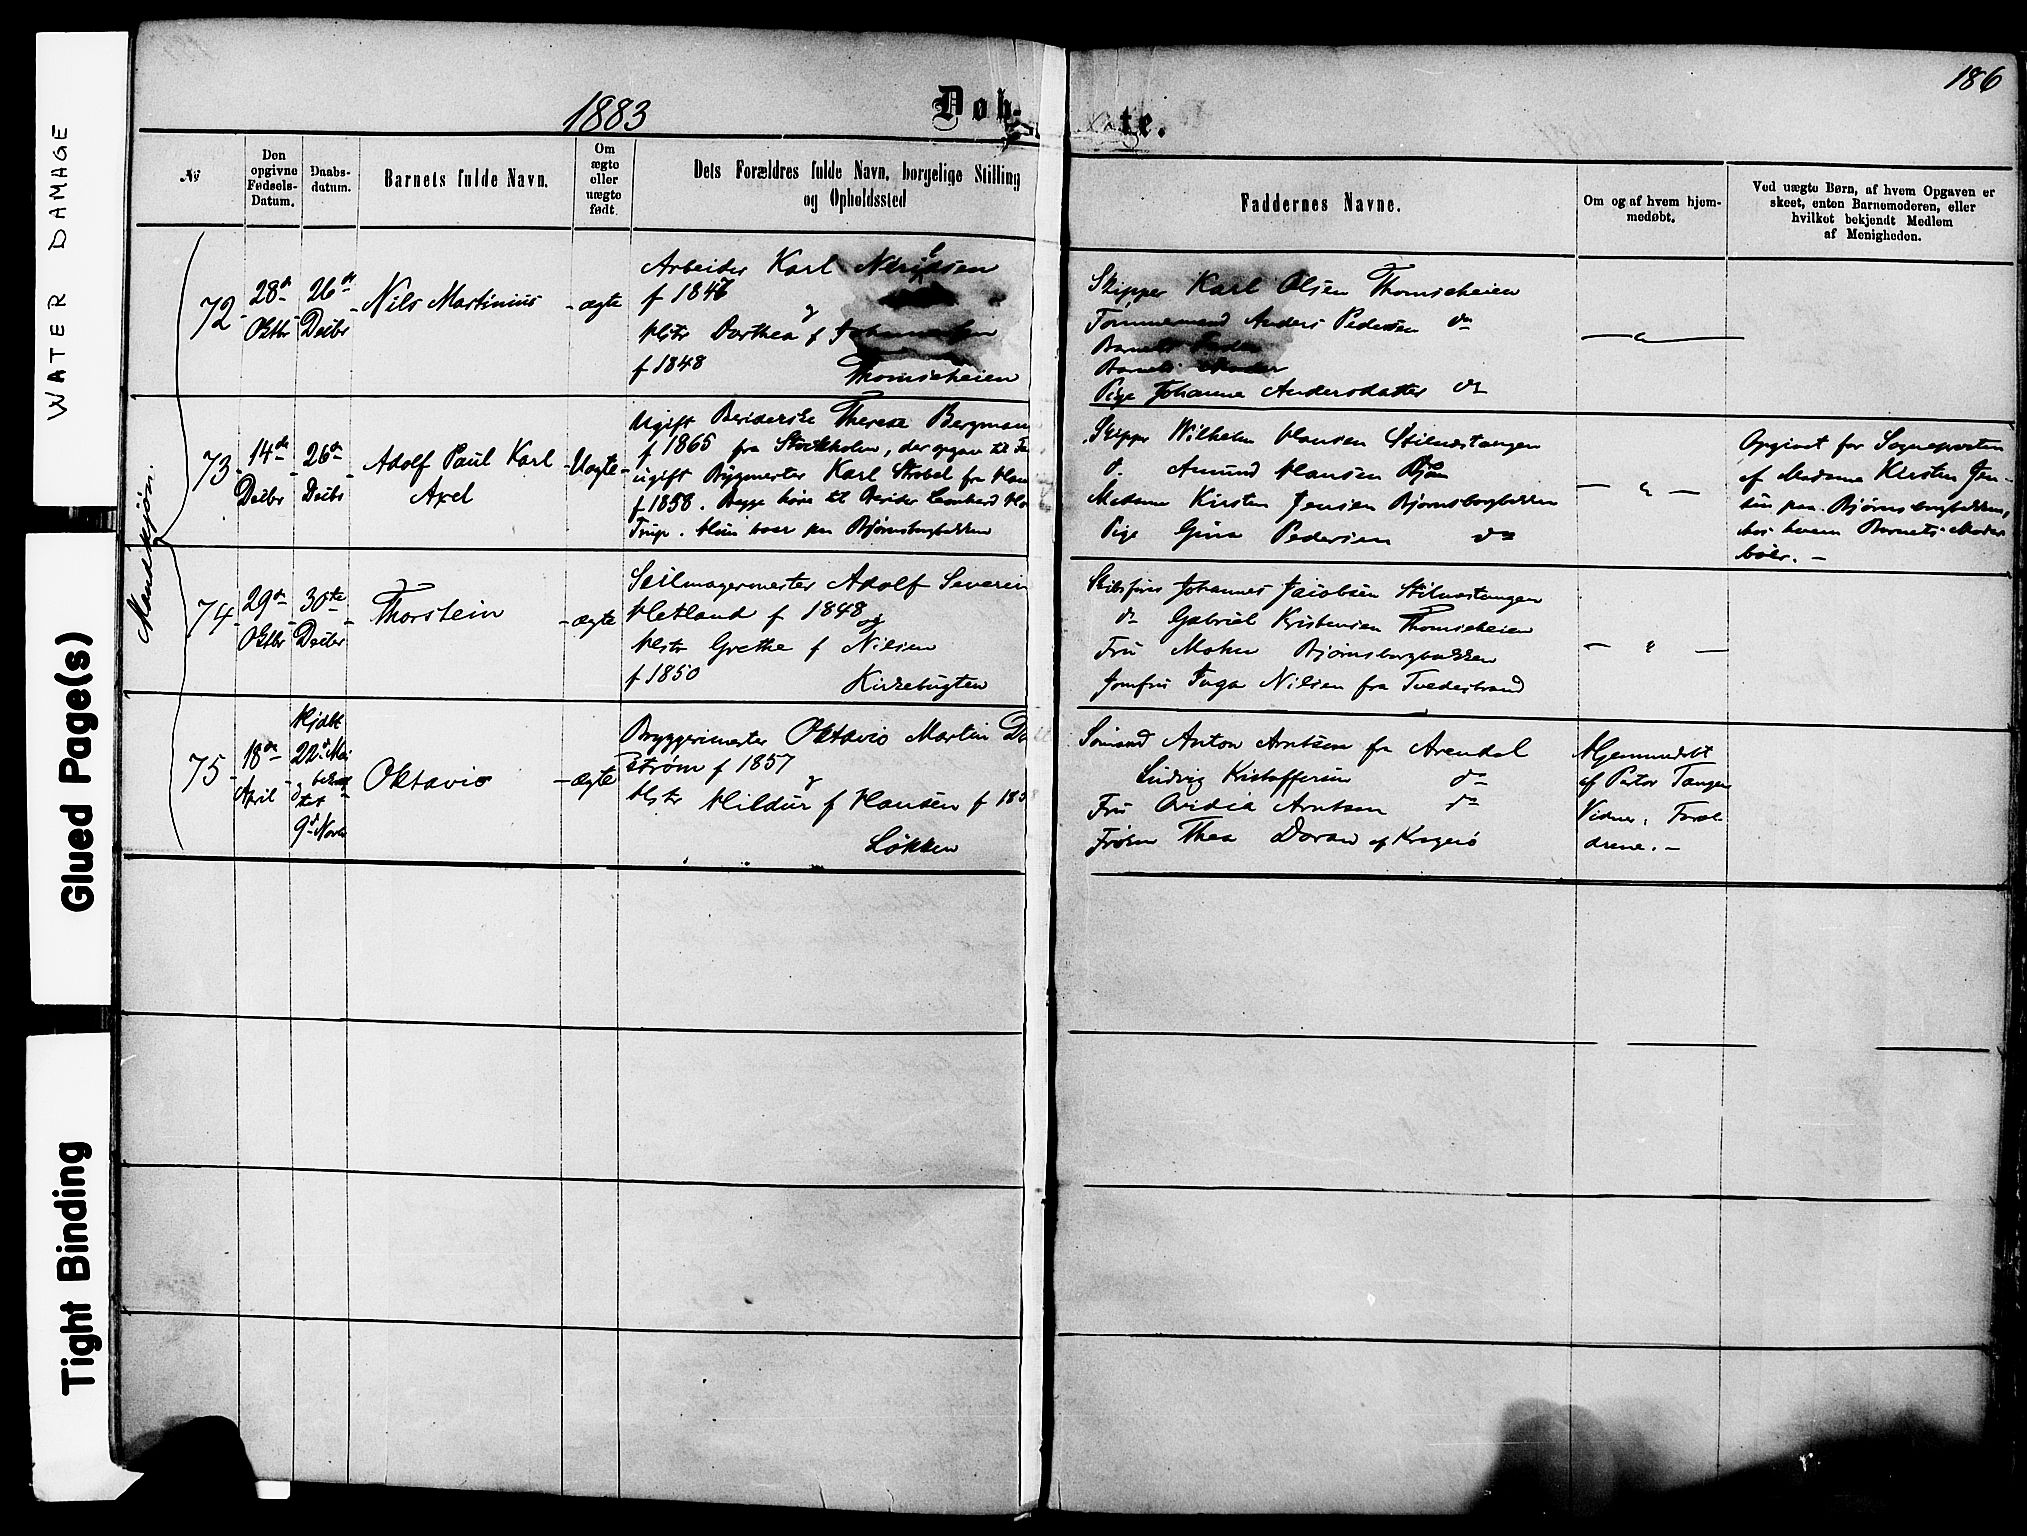 WATER DAMAGE
Glued Page(s)
Tight Binding
186
1883
Døb-
te.
No
Den opgivne Fødsels-Datum.
Daabs-datum.
Barnets fulde Navn.
Om ægte eller uægte født.
Dets Forældres fulde Navn, borgelige Stilling
og Opholdssted
Faddernes Navne.
Om og af hvem hjem-
medøbt.
Ved uægte Børn, af hvem Opgaven er
skeet, enten Barnemoderen, eller
hvilket bekjendt Medlem
af Menigheden.
Mandkjøn.
72
28de Oktbr
26de Decbr
Nils Martinius
ægte
Arbeider Karl
f 1847
og
Hstr Dorthea f
f 1848 Thomseheien
Skipper Karl Olsen Thomseheien
Tømmermand Anders Pedersen do
Barnets Fader
Barnets Moder
Pige Johanne Andersdatter do
73
14de Decbr
26de Decbr
Adolf Paul Karl
Axel
Uægte
Ugift Beriderske Therese Bergman
f 1865 fra Stockholm, der opgav til
ugift Bygmester Karl Strobel fra
f 1858. Begge høre til Berider Leonhard
Trup. Hun boer paa Bjørnsborgbakken
Skipper Wilhelm Hansen Stilnestangen
do Amund Hansen
Madame Kirsten Jensen Bjørnsborgbakken
Pige Gina Pedersen do
Opgivet for Sognepresten
af Madame Kirsten Jen-
sen paa Bjørnsborgbakken,
hos hvem Barnets Moder
boer. -
74
29de Oktbr
30te Decbr
Thorstein
ægte
Seilmagermester Adolf Severin
Hetland f 1848
og
Hstr Grethe f Nilsen
f 1850 Kirkebugten
Skibsfører Johannes Jacobsen Stilnestangen
do Gabriel Kristensen Thomseheien
Fru Moken Bjørnsborgbakken
Jomfru Inga Nilsen fra Tvedestrand
75
18de April
Hjdbt
22d Mai
9d Novbr
Oktavio
ægte
Bryggerimester Oktavio Martin
strøm f 1857
og
Hstr Hildur f Hansen f 185
Løkken
Sømand Anton Arntsen fra Arendal
Ludvig Kristoffersen do
Fru Ovidia Arntsen do
Frøken Thea Doran af Kragerø
Hjemmedøbt
af Pastor Tangen
Vidner: Foræl-
drene. -